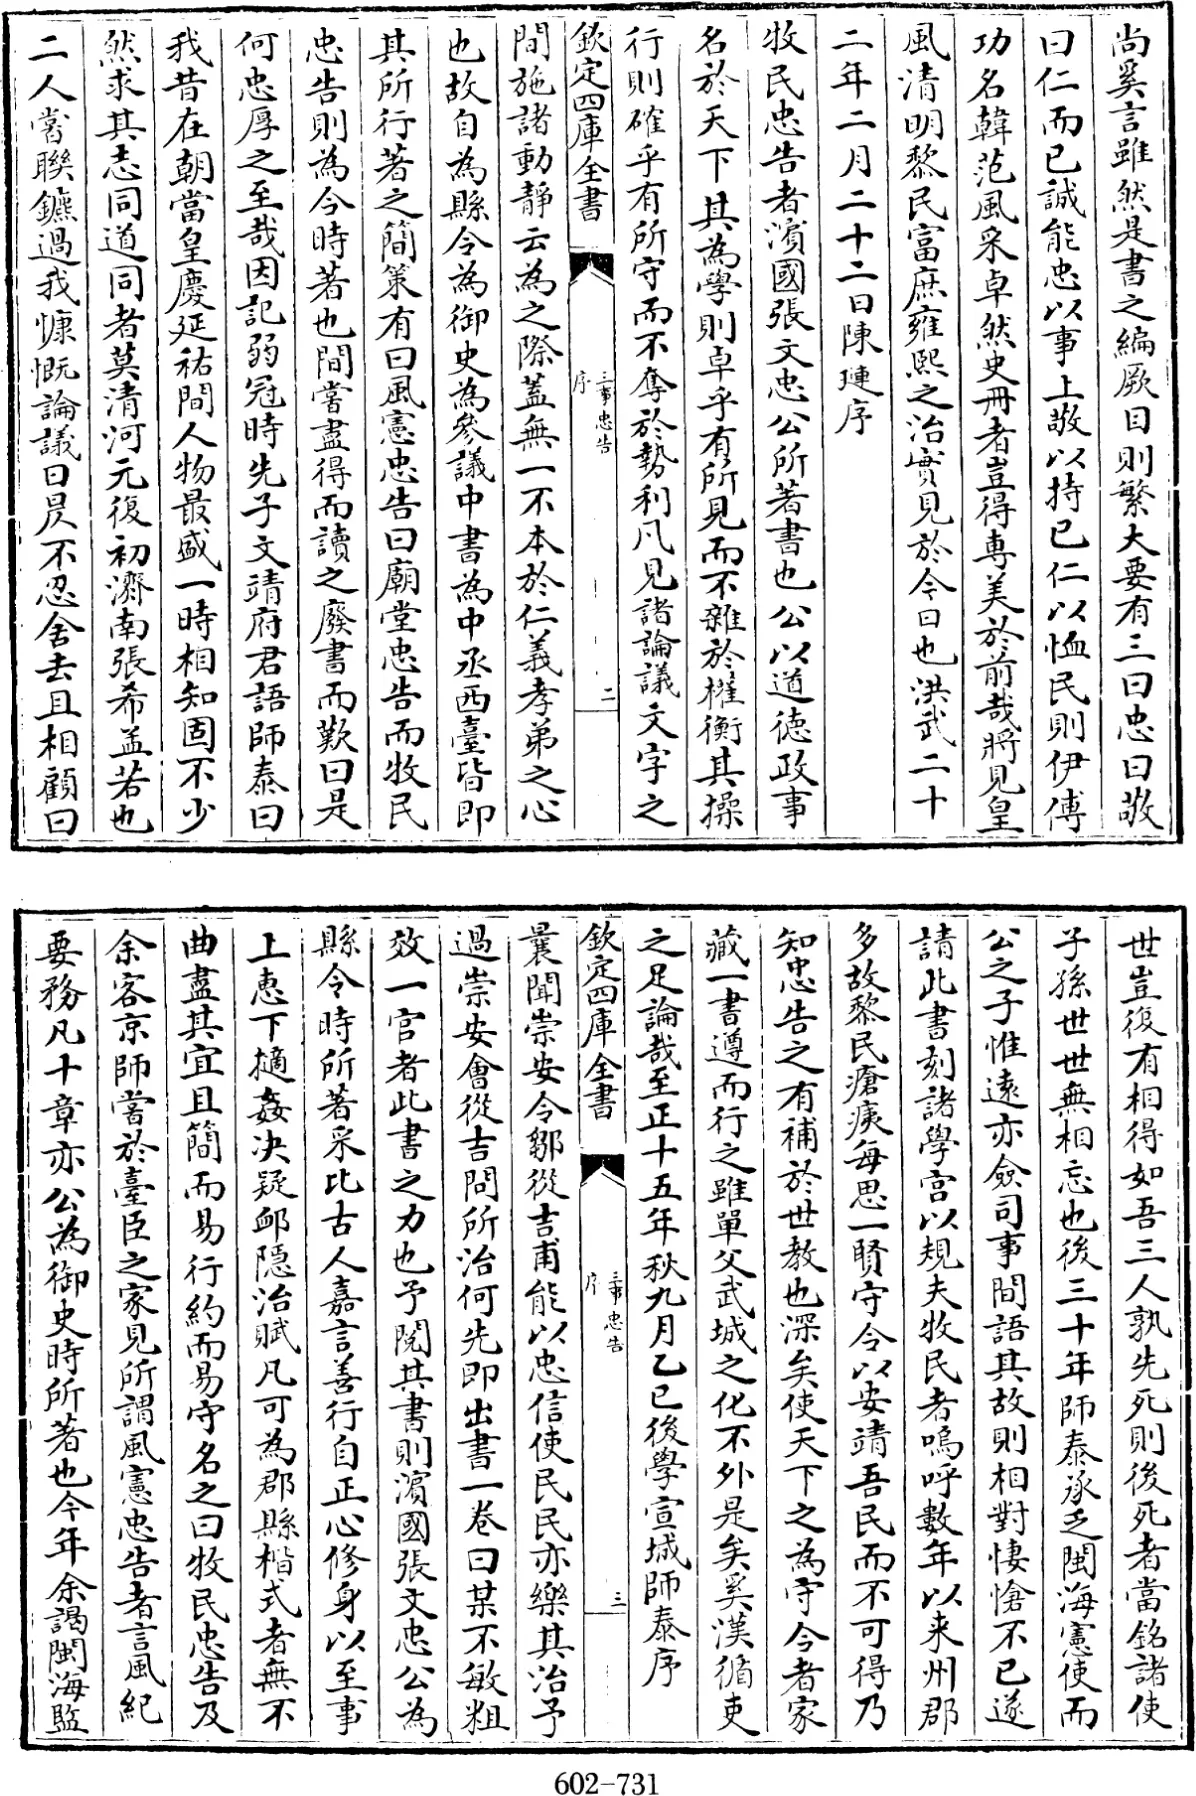 尚奚言雖然是書之編厥目則繁大要有三曰忠曰敬
曰仁而已誠能忠以事上敬以持已仁以恤民則伊傅
功名韓范風采卓然史冊者豈得專美於前哉將見皇
風清明黎民富庶雍熙之治實見於今日也洪武二十
二年二月二十二日陳璉序
牧民忠告者濱國張文忠公所著書也公以道德政事
名於天下其為學則卓乎有所見而不雜於權衡其操
行則確乎有所守而不奪於勢利凡見諸論議文字之
欽定四庫全書
三事忠告
序
二
間施諸動靜云為之際蓋無一不本於仁義孝弟之心
也故自為縣令為御史為參議中書為中丞西臺皆即
其所行著之簡策有曰風憲忠告曰廟堂忠告而牧民
忠告則為今時著也間嘗盡得而讀之廢書而歎曰是
何忠厚之至哉因記弱冠時先子文靖府君語師泰曰
我昔在朝當皇慶延祐間人物最盛一時相知固不少
然求其志同道同者莫清河元復初濟南張希孟若也
二人嘗聯鑣過我慷慨論議日昃不忍舍去且相顧曰
世豈復有相得如吾三人孰先死則後死者當銘諸使
子孫世世無相忘也後三十年師泰承乏閩海憲使而
公之子惟遠亦僉司事間語其故則相對悽愴不已遂
請此書刻諸學宮以規夫牧民者嗚呼數年以来州郡
多故黎民瘡痍每思一賢守令以安靖吾民而不可得乃
知忠告之有補於世教也深矣使天下之為守令者家
藏一書遵而行之雖單父武城之化不外是矣奚漢循吏
之足論哉至正十五年秋九月乙已後學宣城師泰序
欽定四庫全書
三事忠告
序
三
曩聞崇安令鄒從吉甫能以忠信使民民亦樂其治予
過崇安會從吉問所治何先即出書一卷曰某不敏粗
效一官者此書之力也予閱其書則濱國張文忠公為
縣令時所著采比古人嘉言善行自正心修身以至事
上惠下擿姦决疑䘏隱治賦凡可為郡縣楷式者無不
曲盡其宜且簡而易行約而易守名之曰牧民忠告及
余客京師嘗於臺臣之家見所謂風憲忠告者言風紀
要務凡十章亦公為御史時所著也今年余謁閩海監
602-731